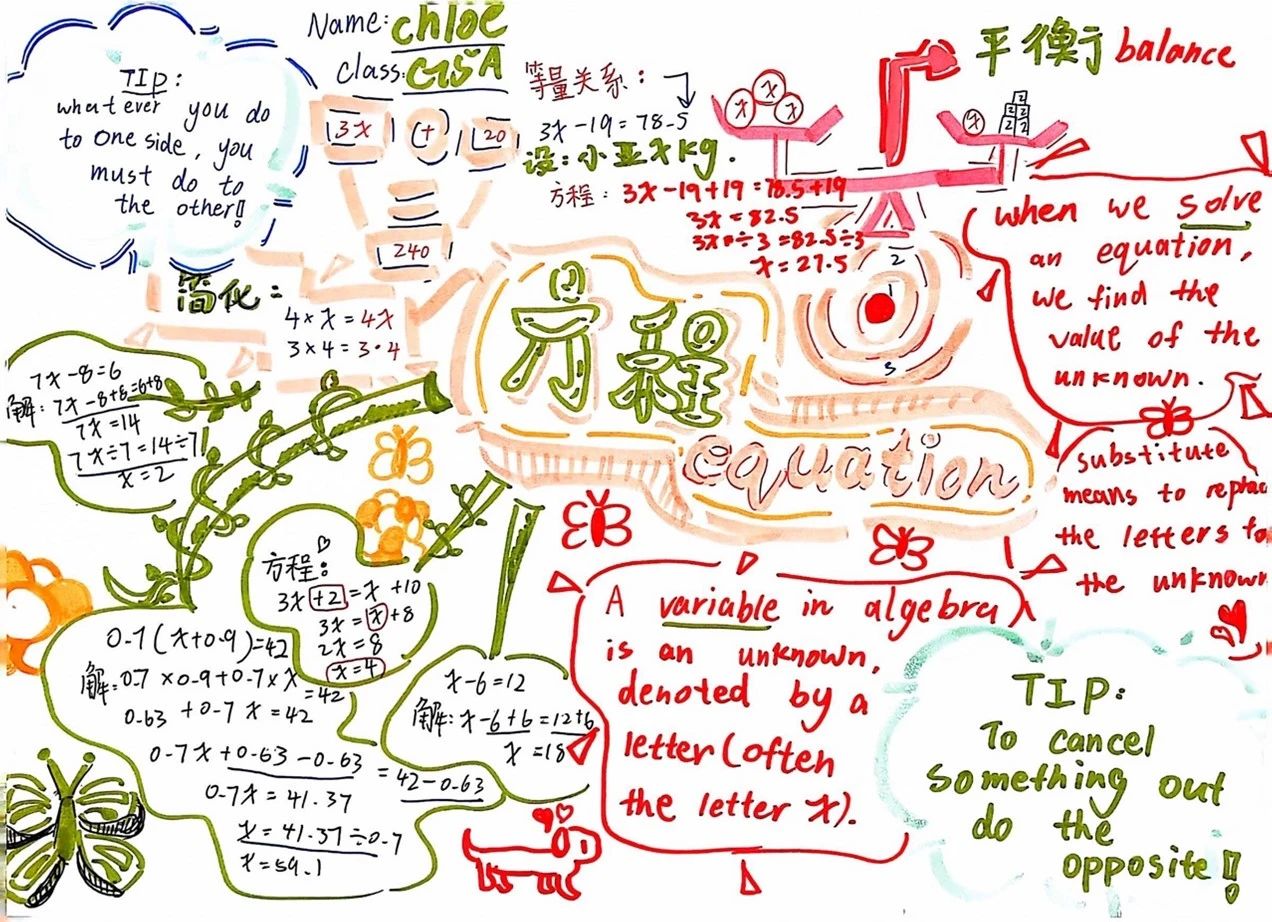 Name: chloe
Class: G5A
TIP:
whatever you do
to one side, you
must do to
the other!!
3x + 20
=
240
等量关系:
3x-19=78.5
设:小亚xkg.
方程: 3x-19+19=78.5+19
3x=82.5
3x÷3=82.5÷3
x=27.5
平衡 balance
x x x
x 2 2 2 2 2
when we solve
an equation,
we find the
value of the
unknown.
简化:
4×x=4x
3×4=3·4
方程
equation
2
1
7x-8=6
解: 7x-8+8=6+8
7x=14
7x÷7=14÷7
x=2
substitute
means to replac
the letters to
the unknown
方程:
3x+2=x+10
3x=x+8
2x=8
x=4
0.7(x+0.9)=42
解:0.7×0.9+0.7×x=42
0.63+0.7x=42
0.7x+0.63-0.63=42-0.63
0.7x=41.37
x=41.37÷0.7
x=59.1
x-6=12
解: x-6+6=12+6
x=18
A variable in algebra
is an unknown,
denoted by a
letter (often
the letter x).
TIP:
To cancel
something out
do the
opposite!!